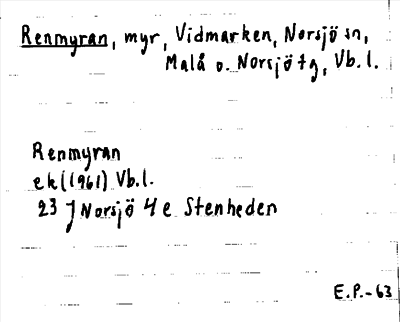 Renmyran, myr, Vidmarken, Norsjö sn,
Malå o. Norsjö tg, Vb.l.
Renmyran
ek (1961) Vb.l.
23 J Norsjö 4 e Stenheden
E.P.-63